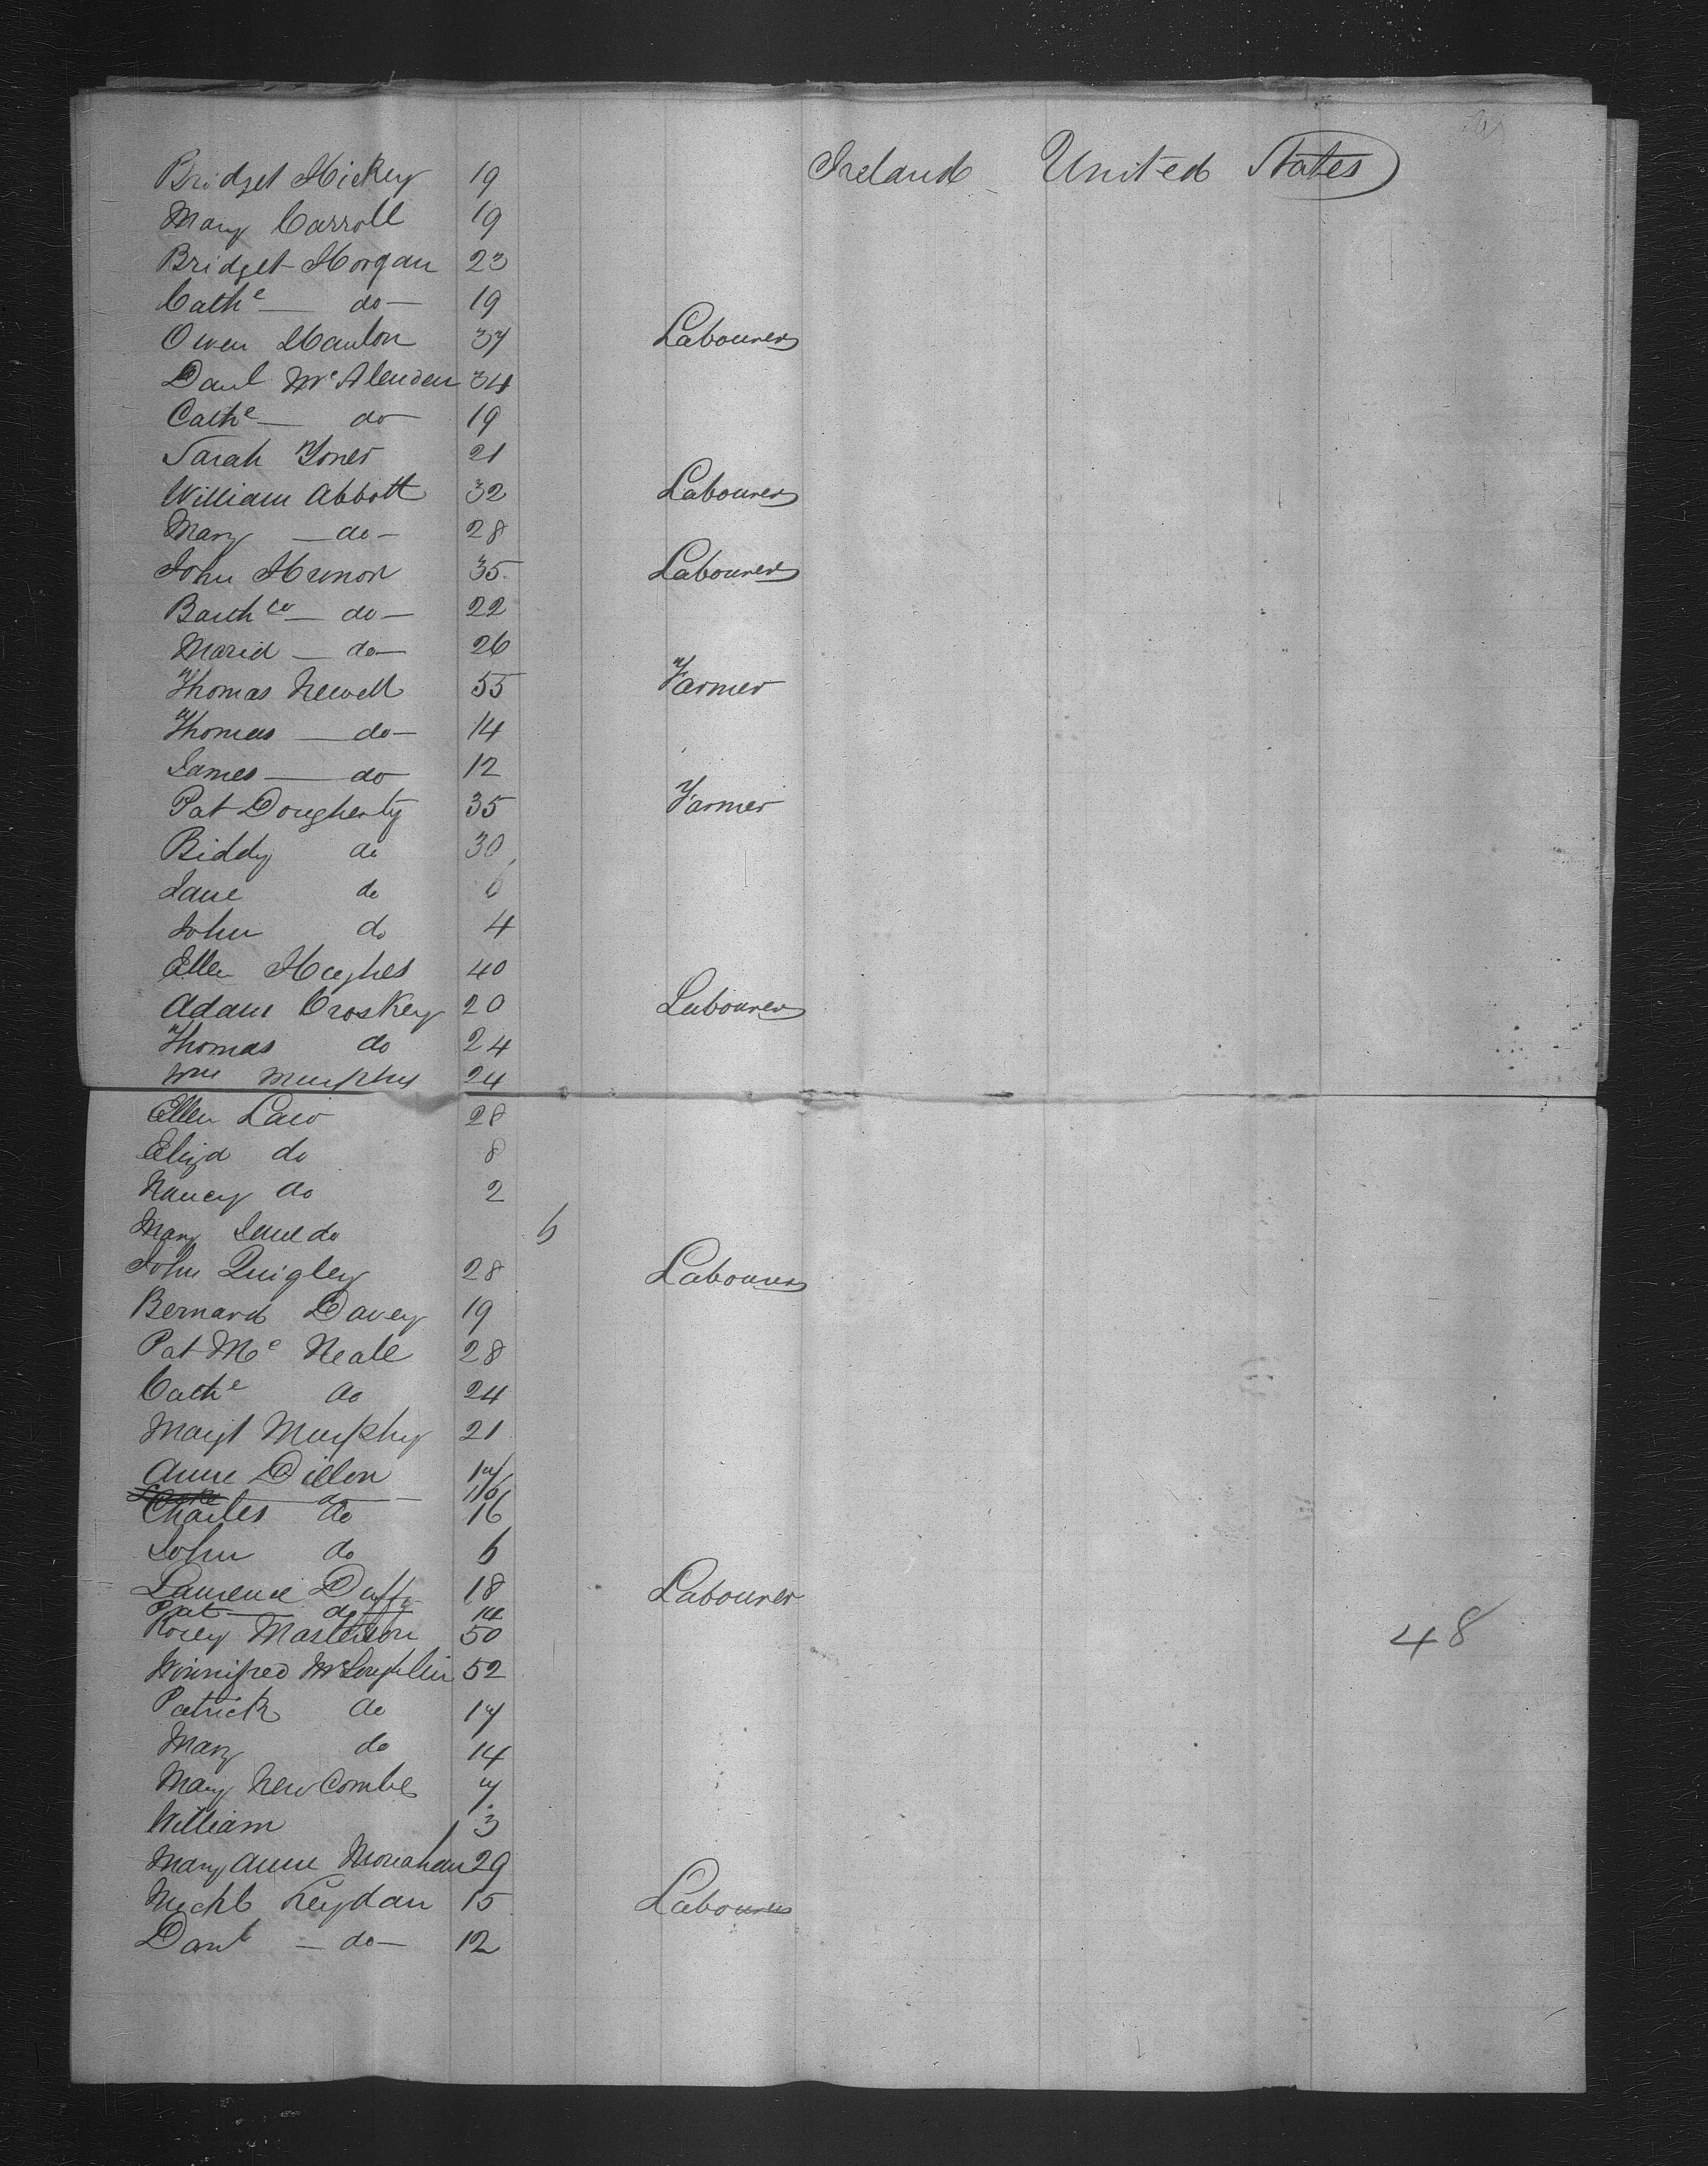 Ireland United States
Bridget Hickey 19
Mary Carroll 19
Bridget Horgan 23
Cathe — do — 19
Owen Hanlon 37 Labourer
Danl Mc Alenden 34
Cathe — do 19
Sarah Jones 21
William Abbott 32 Labourer
Mary — do — 28
John Hunon 35 Labourer
— do — 22
Maria — do — 26
Thomas Newell 55 Farmer
Thomas — do — 14
James — do 12
Pat Dougherty 35 Farmer
Biddy do 30
Jane do 6
John do 4
Ellen Hughes 40
Adam Croskey 20 Labourer
Thomas do 24
Wm Murphy 24
Ellen Law 28
Eliza do 8
Nancy do 2
Mary Jane do 6
John Quigley 28 Labourer
Bernard Davey 19
Pat Mc Neale 28
Cathe do 24
Margt Murphy 21
Anne Dillon 17
do 16
Charles do 16
John do 6
Laurence Duffy 18 Labourer
Pat — do 14
Rosey Masterson 50 48
Winnifred McLoughlin 52
Patrick do 17
Mary do 14
Mary NewCombe 7
William 3
Mary Anne Monahan 29
Michl Leydan 15 Labourer
Danl — do — 12